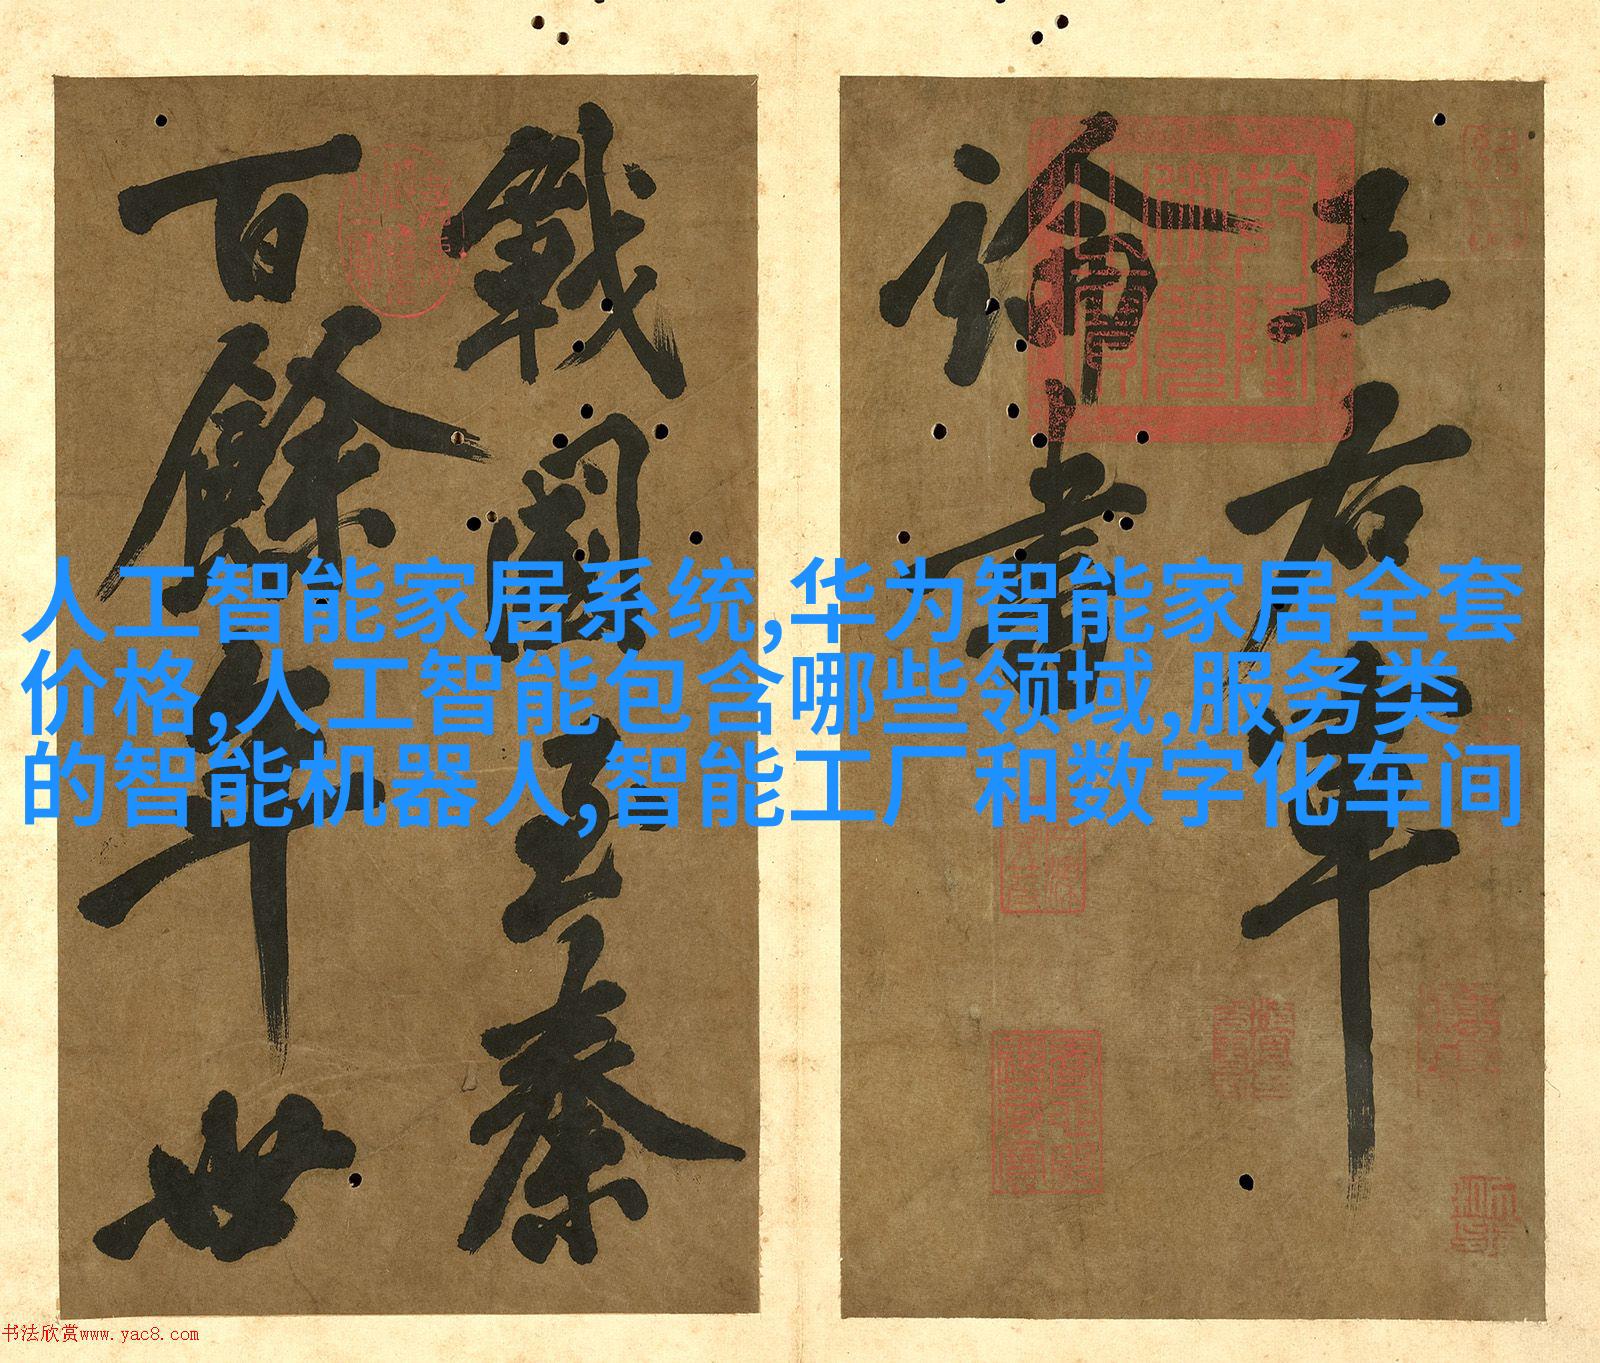 王右軍
論書
戰國至秦
百餘年世
乾隆御覽之寶
人工智能家居系统,华为智能家居全套
价格,人工智能包含哪些领域,服务类
的智能机器人,智能工厂和数字化车间
书法欣赏www.yac8.com